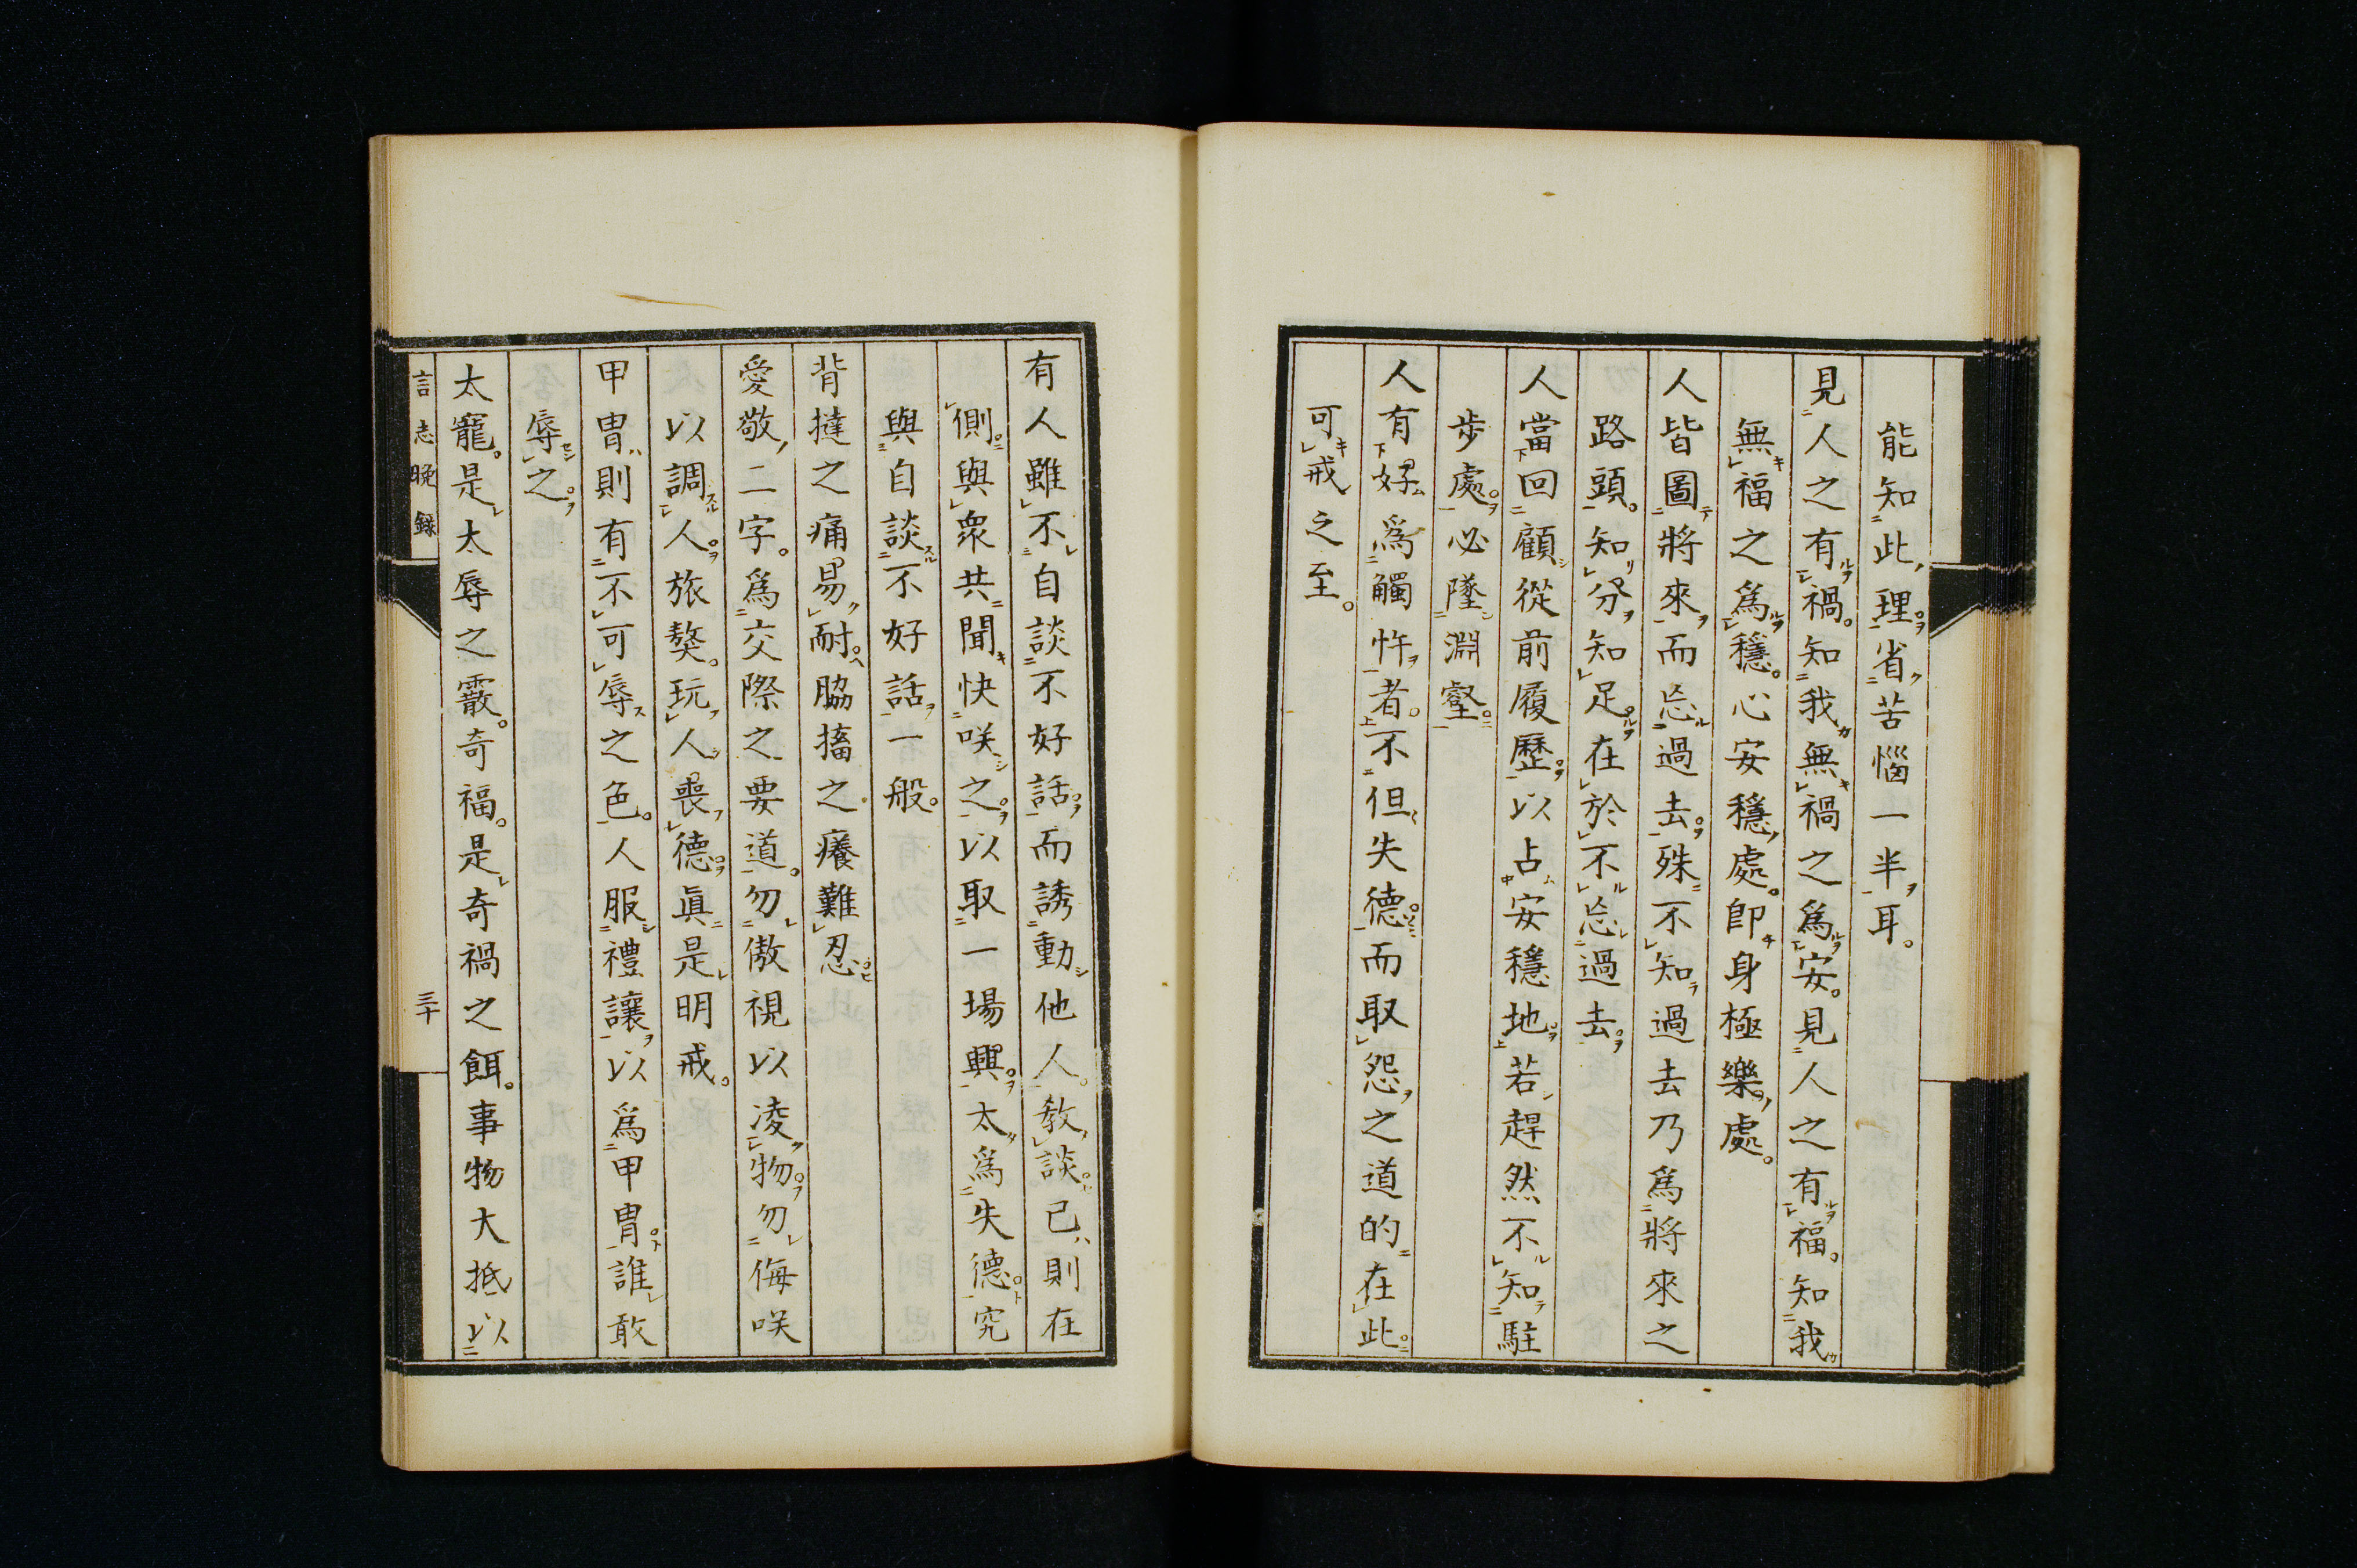 能知此理省苦惱一半耳。
見人之有禍。知我無禍之爲安。見人之有福。知我
無福之爲穩。心安穩處。卽身極樂處。
人皆圖將來而忘過去。殊不知過去乃爲將來之
路頭。知分知足。在於不忘過去。
人當回顧從前履歷。以占安穩地。若趕然不知駐
步處。必墜淵壑。
人有好爲觸忤者。不但失德而取怨之道的在此。
可戒之至。
有人雖不自談不好話。而誘動他人。敎談己則在
側。與衆共聞快咲之。以取一場興。太爲失德。究
與自談不好話一般。
背撻之痛易耐。脇搐之癢難忍。
愛敬二字。爲交際之要道。勿傲視以凌物。勿侮咲
以調人。旅獒。玩人喪德。眞是明戒。
甲冑則有不可辱之色。人服禮讓以爲甲冑。誰敢
辱之。
太寵。是太辱之霰。奇福。是奇禍之餌。事物大抵以
言志晚錄
三十